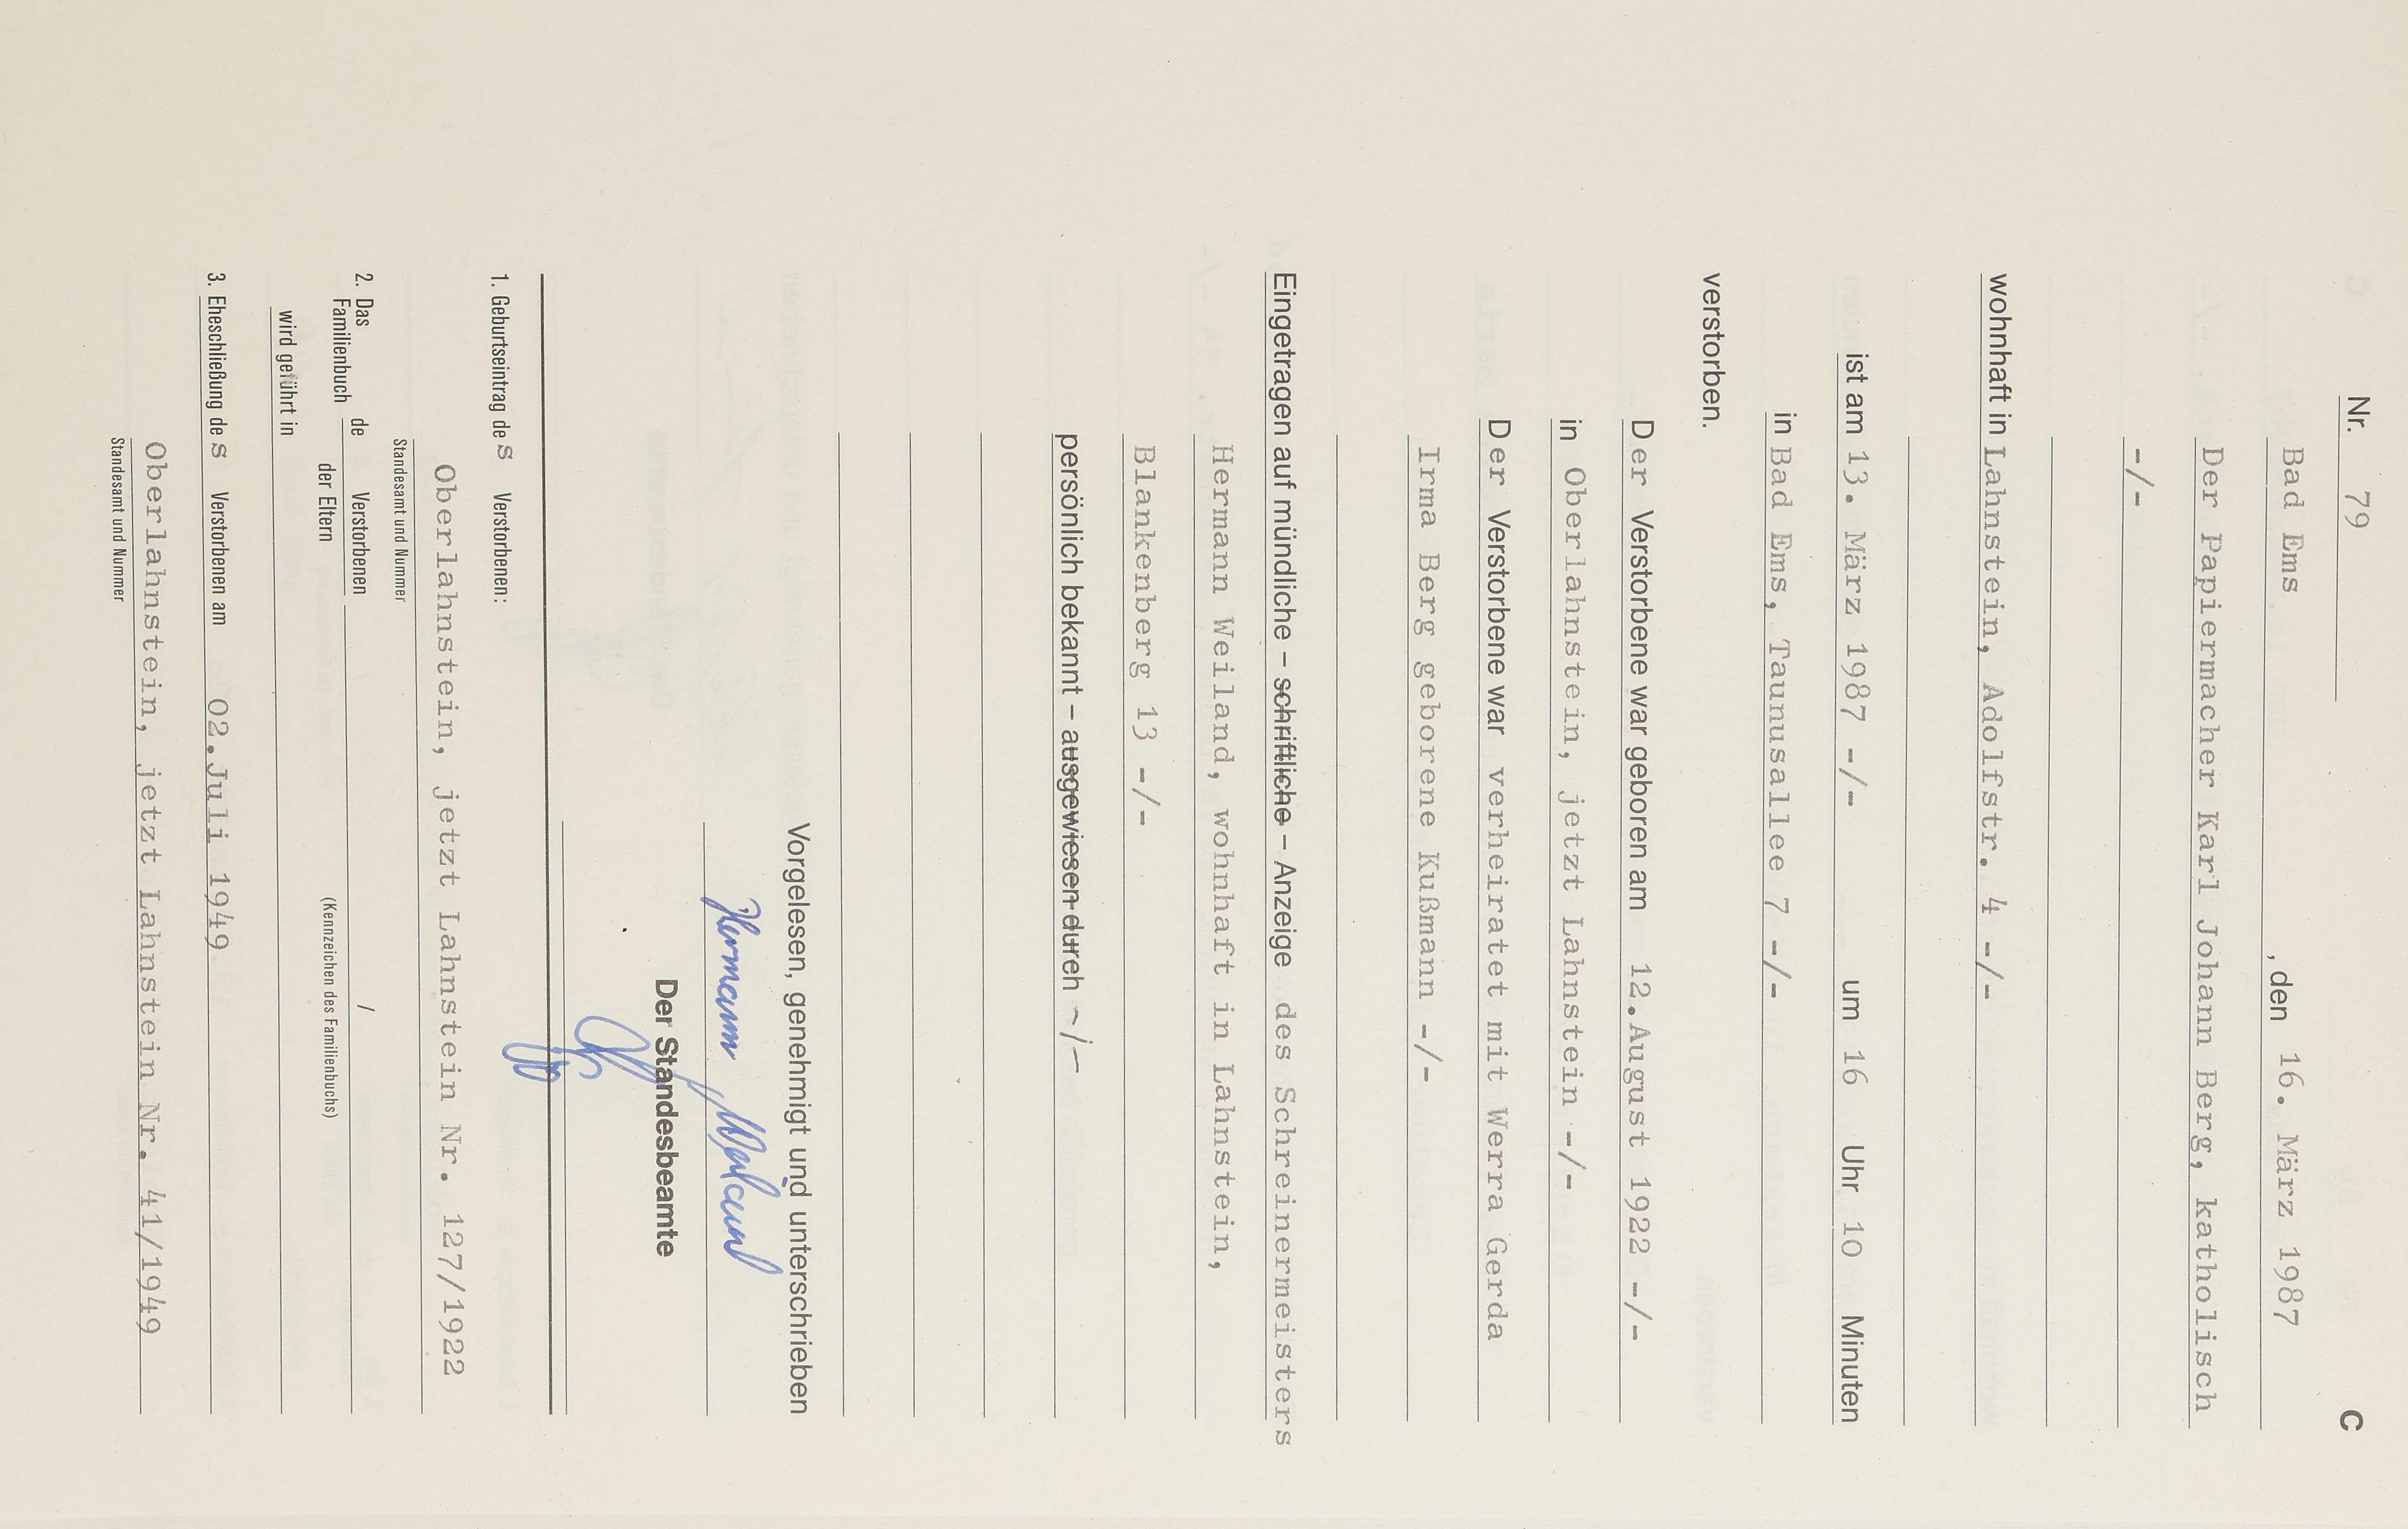 Nr. 79 C
Bad Ems , den 16. März 1987
Der Papiermacher Karl Johann Berg, katholisch
-/-
wohnhaft in Lahnstein, Adolfstr. 4 -/-
ist am 13. März 1987 -/- um 16 Uhr 10 Minuten
in Bad Ems, Taunusallee 7 -/-
verstorben.
Der Verstorbene war geboren am 12.August 1922 -/-
in Oberlahnstein, jetzt Lahnstein -/-
Der Verstorbene war verheiratet mit Werra Gerda
Irma Berg geborene Kußmann -/-
Eingetragen auf mündliche – schriftliche – Anzeige des Schreinermeisters
Hermann Weiland, wohnhaft in Lahnstein,
Blankenberg 13 -/-
persönlich bekannt – ausgewiesen durch -/-
Vorgelesen, genehmigt und unterschrieben
Hermann Weiland
Der Standesbeamte
1. Geburtseintrag des Verstorbenen:
Oberlahnstein, jetzt Lahnstein Nr. 127/1922
Standesamt und Nummer
2. Das Familienbuch de Verstorbenen /
der Eltern (Kennzeichen des Familienbuchs)
wird geführt in
3. Eheschließung des Verstorbenen am 02.Juli 1949
Oberlahnstein, jetzt Lahnstein Nr. 41/1949
Standesamt und Nummer